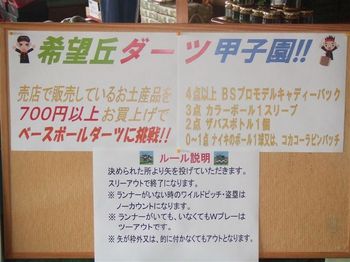 希望丘ダーツ甲子園!!
売店で販売しているお土産品を
700円以上お買上げで
ベースボールダーツに挑戦!!
4点以上 BSプロモデルキャディーバック
3点 カラーボール1スリーブ
2点 ザバスボトル1個
0～1点 ナイキのボール1球又は、コカコーラピンバッチ
ルール説明
決められた所より矢を投げていただきます。
スリーアウトで終了になります。
※ ランナーがいない時のワイルドピッチ・盗塁は
ノーカウントになります。
※ ランナーがいても、いなくてもWプレーは
ツーアウトです。
※ 矢が枠外又は、的に付かなくてもアウトとなります。